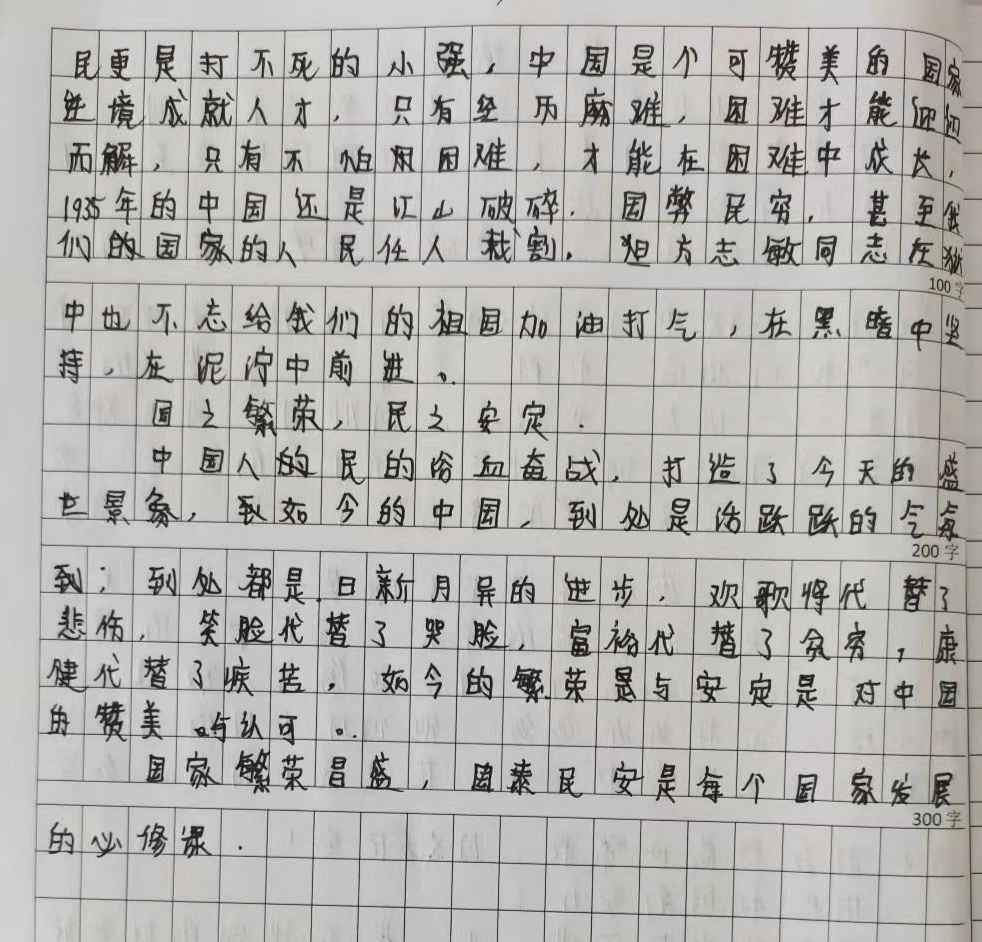 民更是打不死的小强，中国是个可赞美的国家
逆境成就人才，只有经历磨难，困难才能迎刃
而解，只有不怕困难，才能在困难中成长，
1935年的中国还是江山破碎．国弊民穷，甚至我
们的国家的人民任人栽割．但方志敏同志在狱
100字
中也不忘给我们的祖国加油打气，在黑暗中坚
持，在泥泞中前进。
国之繁荣，民之安定．
中国人的民的浴血奋战，打造了今天的盛
世景象，到如今的中国，到处是活跃跃的气象
200字
到；到处都是日新月异的进步，欢歌将代替了
悲伤，笑脸代替了哭脸，富裕代替了贫穷，康
健代替了疾苦，如今的繁荣是与安定是对中国
的赞美与认可。
国家繁荣昌盛，国泰民安是每个国家发展
300字
的必修课．